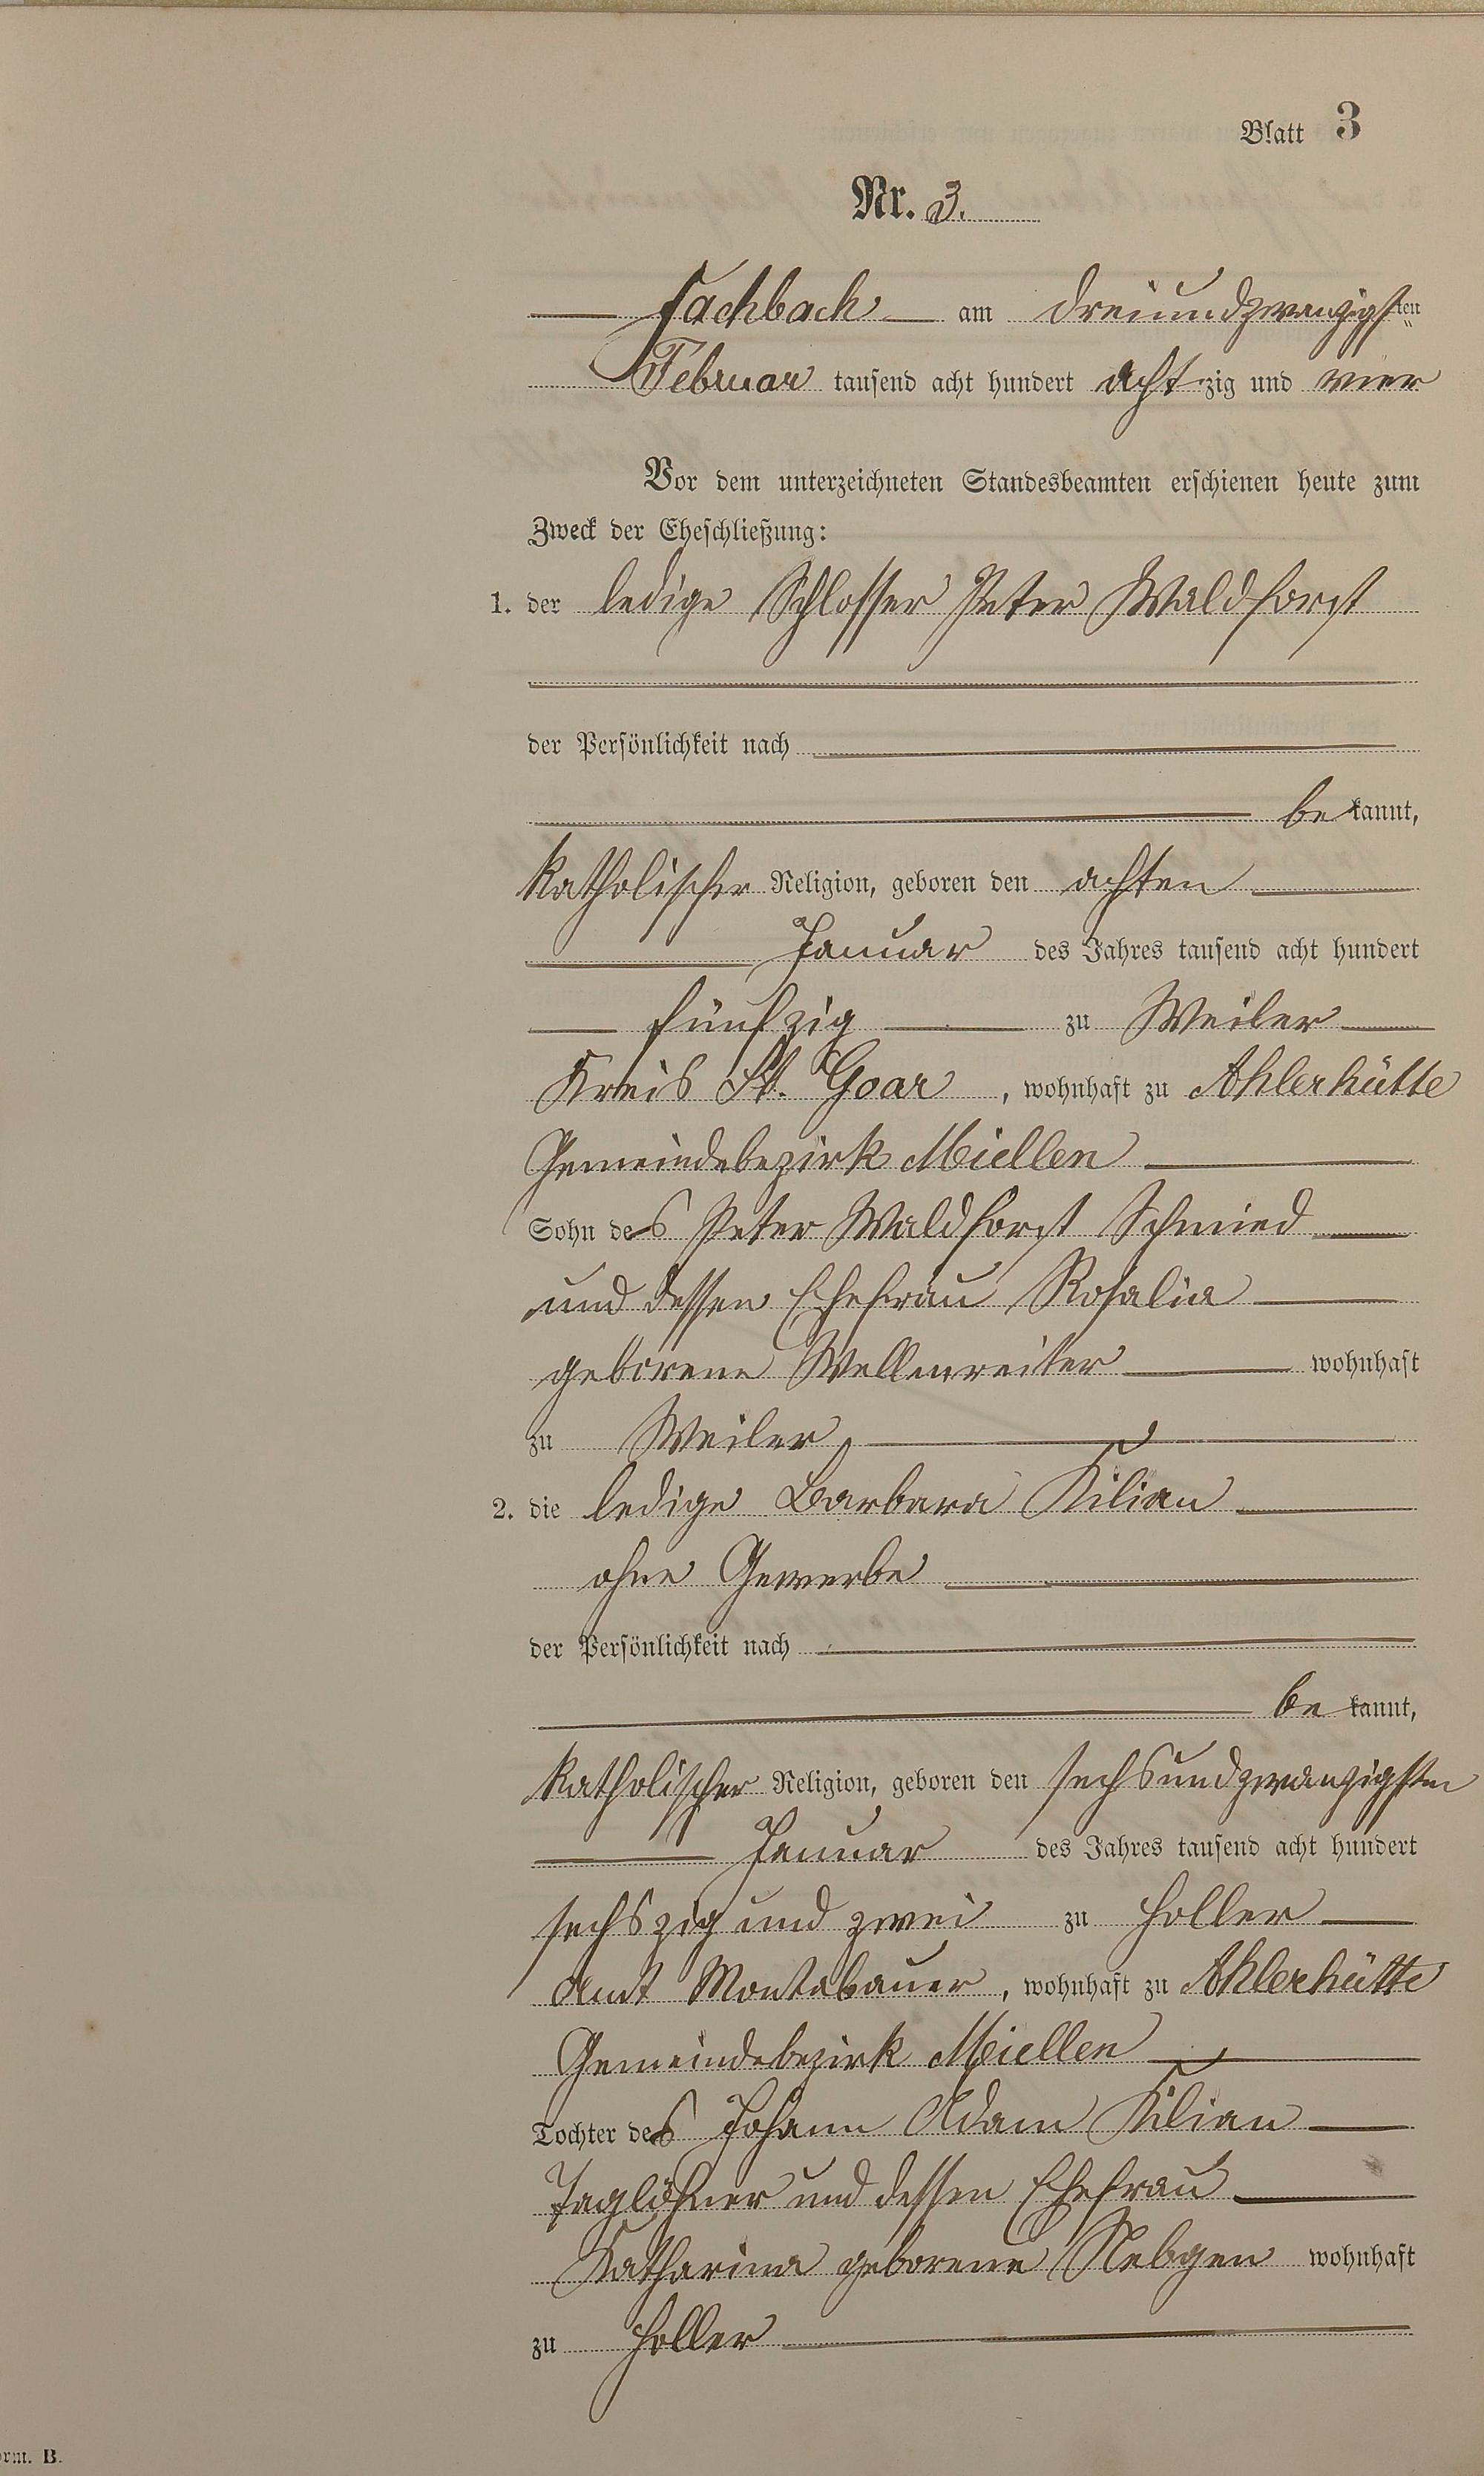 Blatt 3
Nr. 3.
Fachbach am dreiundzwanzigsten
Februar tausend acht hundert achtzig und vier
Vor dem unterzeichneten Standesbeamten erschienen heute zum
Zweck der Eheschließung:
1. der ledige Schlosser Peter Waldforst
der Persönlichkeit nach
bekannt,
katholischer Religion, geboren den achten
Januar des Jahres tausend acht hundert
fünfzig zu Weiler
Kreis St. Goar, wohnhaft zu Ahlerhütte
Gemeindebezirk Miellen
Sohn des Peter Waldforst Schmied
und dessen Ehefrau Rosalia
geborene Wellenreiter wohnhaft
zu Weiler
2. die ledige Barbara Kilian
ohne Gewerbe
der Persönlichkeit nach
bekannt,
katholischer Religion, geboren den sechsundzwanzigsten
Januar des Jahres tausend acht hundert
sechszig und zwei zu Holler
Amt Montabauer, wohnhaft zu Ahlerhütte
Gemeindebezirk Miellen
Tochter des Johann Adam Kilian
Taglöhner und dessen Ehefrau
Katharina geborene Nebgen wohnhaft
zu Holler
orm. B.